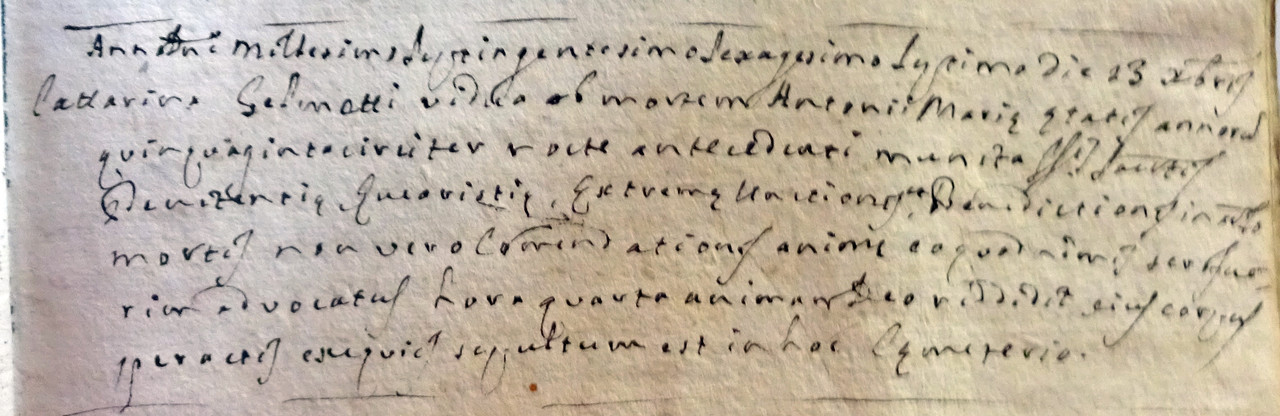 Anno Dni Millesimo Septingentesimo Sexagesimo Septimo die 23 Xbris
Cattarina Gelmetti vidua ob mortem Antonii Marię ętatis annorũ
quinquaginta circiter nocte antecedenti munita SS.is Sacr.tis
Penitentię, Eucaristię, Extremę Unctionis, et Benedictionis in articulo
mortis non vero Comendationis animę eo quod nimis sero fue-
rim advocatus hora quarta animam Deo reddidit eius corpus
peractis exequiis sepultum est in hoc Cęmeterio.